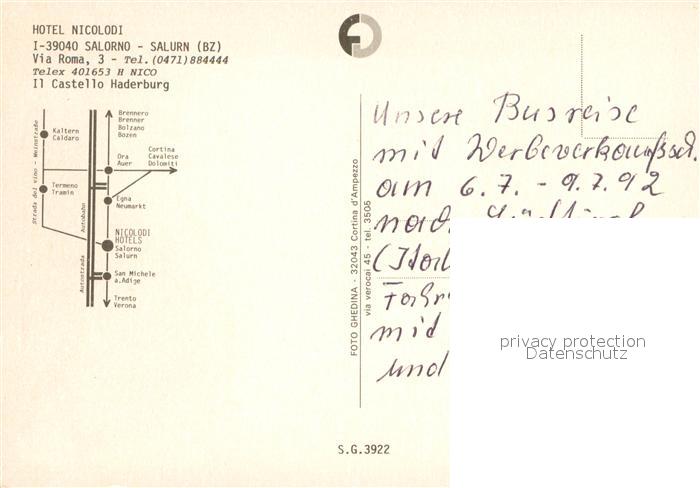 HOTEL NICOLODI
I-39040 SALORNO - SALURN (BZ)
Via Roma, 3 - Tel.(0471)884444
Telex 401653 H NICO
Il Castello Haderburg
Brennero
Brenner
Bolzano
Bozen
Kaltern
Caldaro
Cortina
Cavalese
Dolomiti
Ora
Auer
Termeno
Tramin
Egna
Neumarkt
NICOLODI
HOTELS
Salorno
Salurn
San Michele
a.Adige
Trento
Verona
Strada del vino - Weinstraße
Autobahn
Autostrada
FOTO GHEDINA - 32043 Cortina d'Ampezzo
via verocai 45 - tel. 3505
Unsere Busreise
mit Werbeverkaufssch.
am 6.7. - 9.7.92
mit
und
privacy protection
Datenschutz
S.G.3922